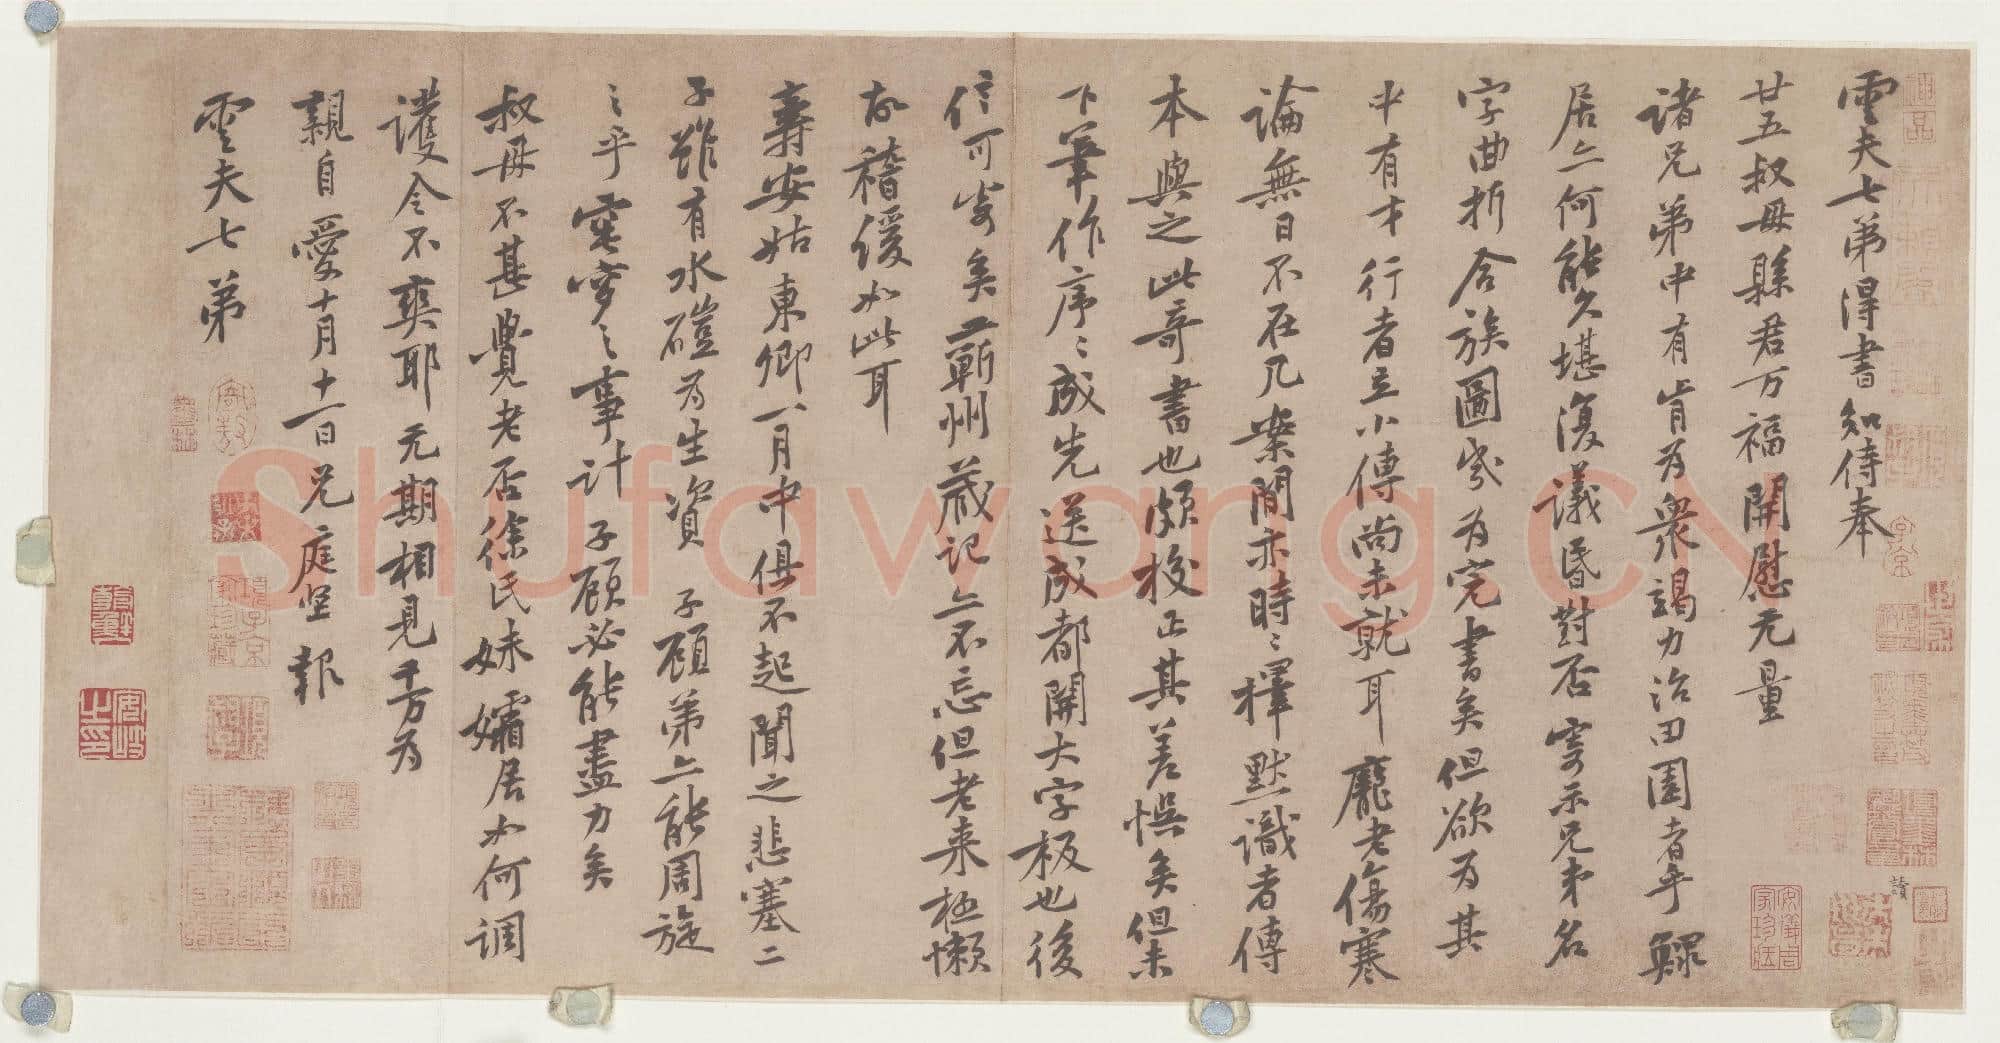 雲夫七弟得書知侍奉
廿五叔母縣君万福開慰无量
諸兄弟中有肯為衆竭力治田園者乎鰥
居亦何能久堪復議昏對否寄示兄弟名
字曲折合族圖岁為完書矣但欲為其
中有才行者立小傳尚未就耳龐老傷寒
論無日不在几案間亦時〻擇默識者傳
本與之此奇書也頗校正其差悞矣但未
下筆作序〻成先送成都開大字板也後
信可寄矣蘄州藏記亦不忘但老来極懶
故稽緩如此耳
壽安姑東卿一月中俱不起聞之悲塞二
子雖有水磑為生資子顧弟亦能周旋
之乎窀穸之事計子顧必能盡力矣
叔母不甚覺老否徐氏妹孀居如何調
護令不爽耶无期相見千万為
親自愛十月十一日兄庭坚報
雲夫七弟
Shufawang.CN